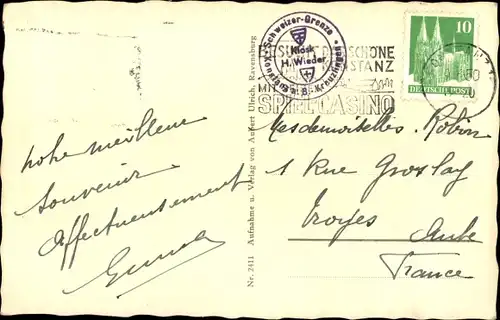 Notre meilleur
souvenir
Affectueusement
Schweizer-Grenze
Kiosk
H. Wieder
Konstanz a. B.-Kreuzlingen
BESUCHT DAS SCHÖNE
KONSTANZ
MIT
SPIELCASINO
10
DEUTSCHE POST
Mesdemoiselles Robin
1 Rue Grosley
Troyes
Aube
France
Nr. 2411 Aufnahme u. Verlag von Aubert Ulrich, Ravensburg